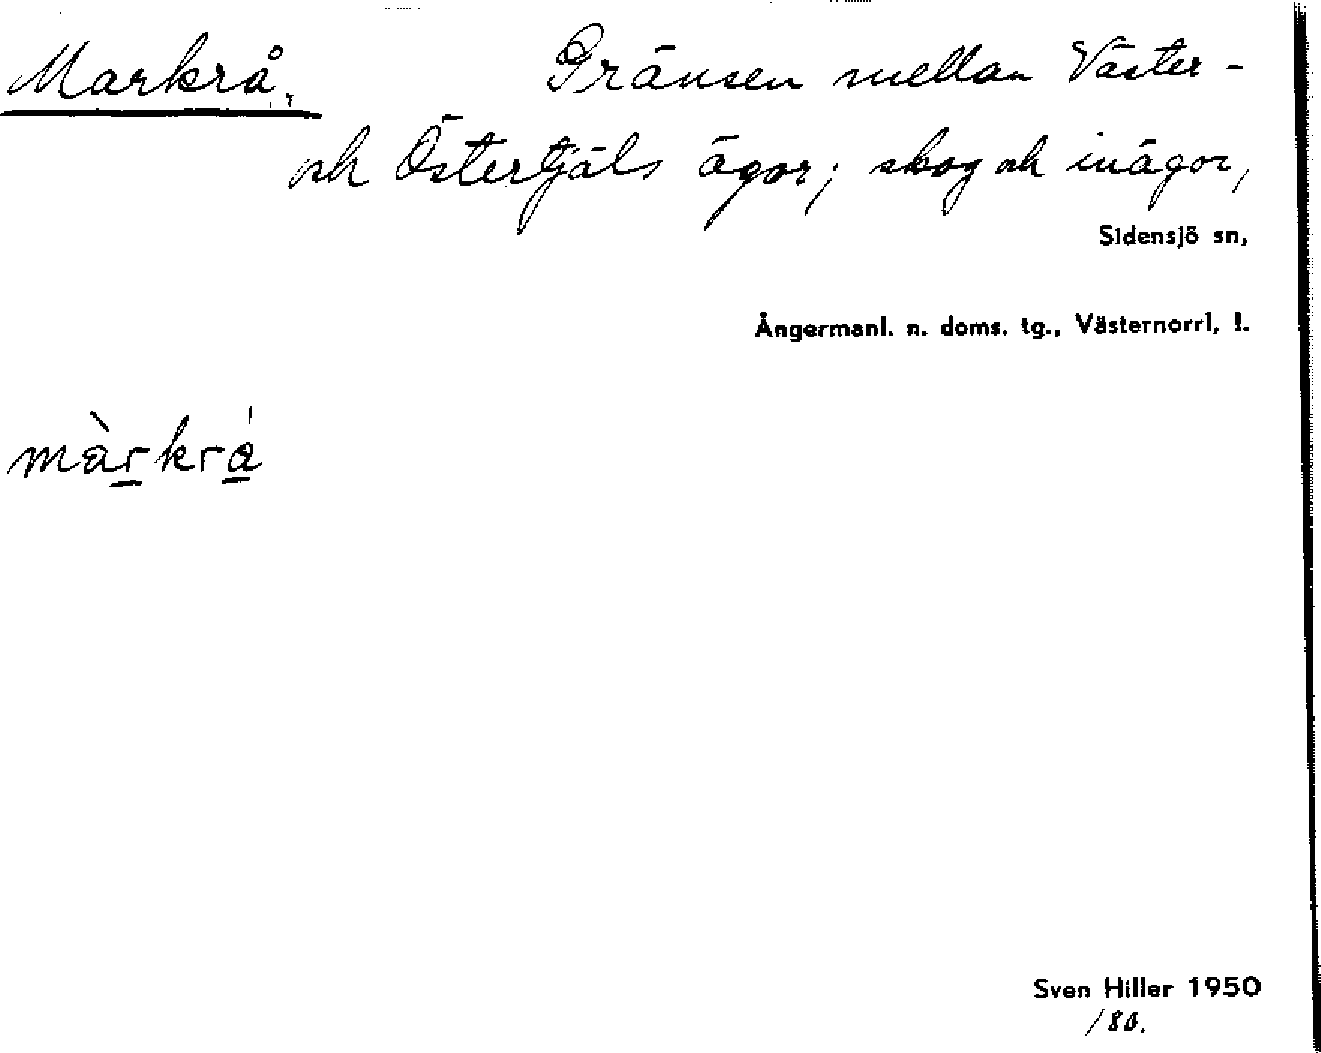 Markrå, Gränsen mellan Väster-
och Östertjäls ägor; skog och inägor,
Sidensjö sn,
Ångermanl. n. doms. tg., Västernorrl. l.
màrkrǻ
Sven Hiller 1950